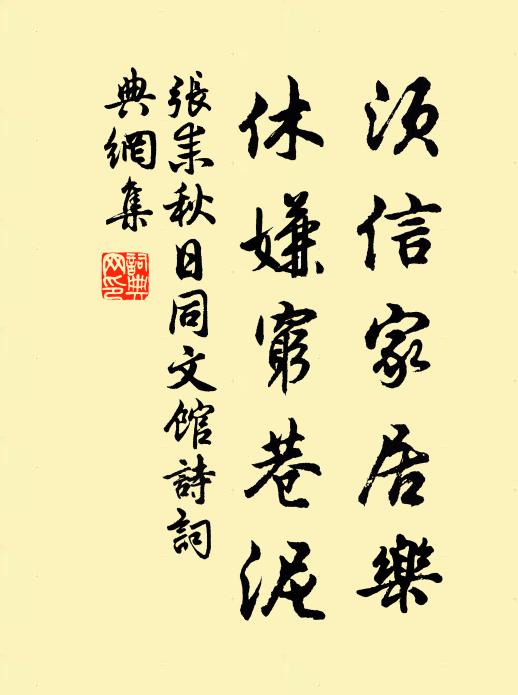 須信家居樂
休嫌窮巷泥
張耒秋日同文館詩詞
典網集
詞典
网印